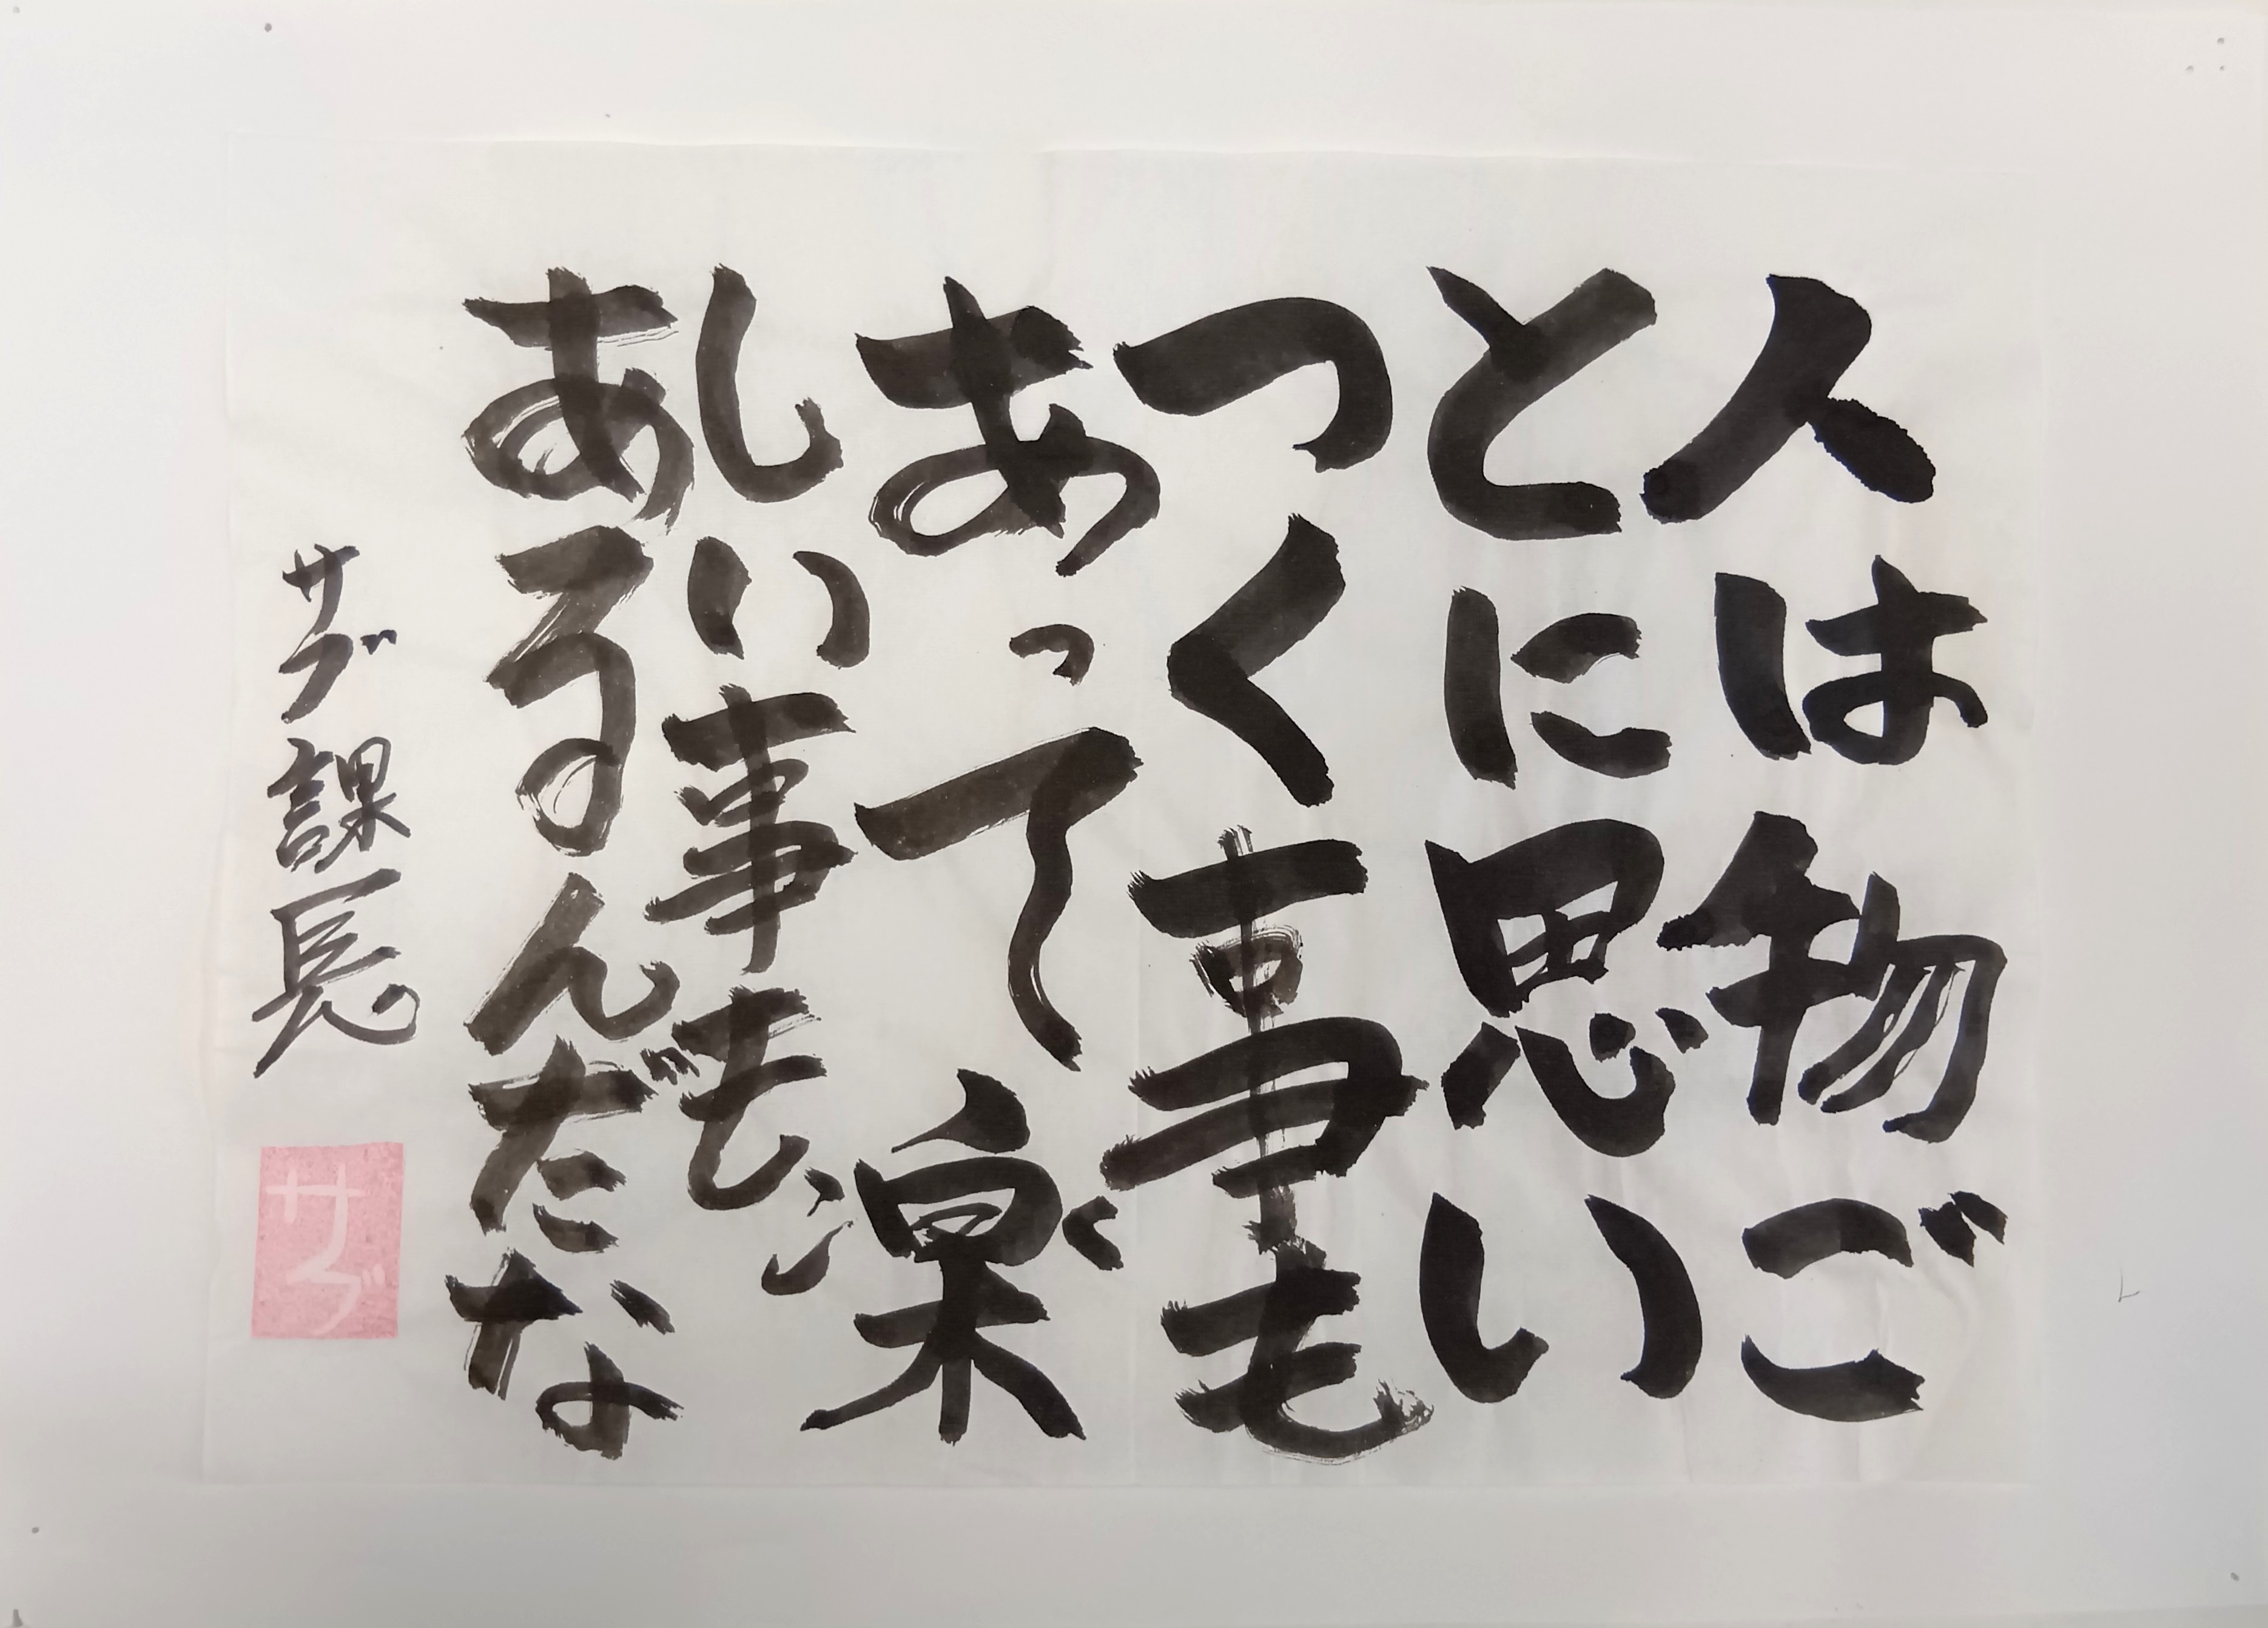 人は物ご
とに思い
つく事も
あって楽
しい事も
あるんだな
サブ課長
サブ